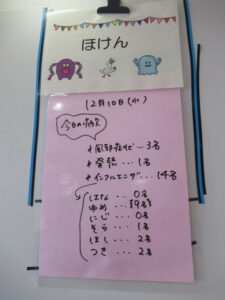 ほけん
12月10日(水)
今日の病欠
*風邪症状... 3名
*発熱... 1名
*インフルエンザ... 14名
はな... 0名
ゆめ... 9名
にじ... 0名
そら... 1名
ほし... 2名
つき... 2名